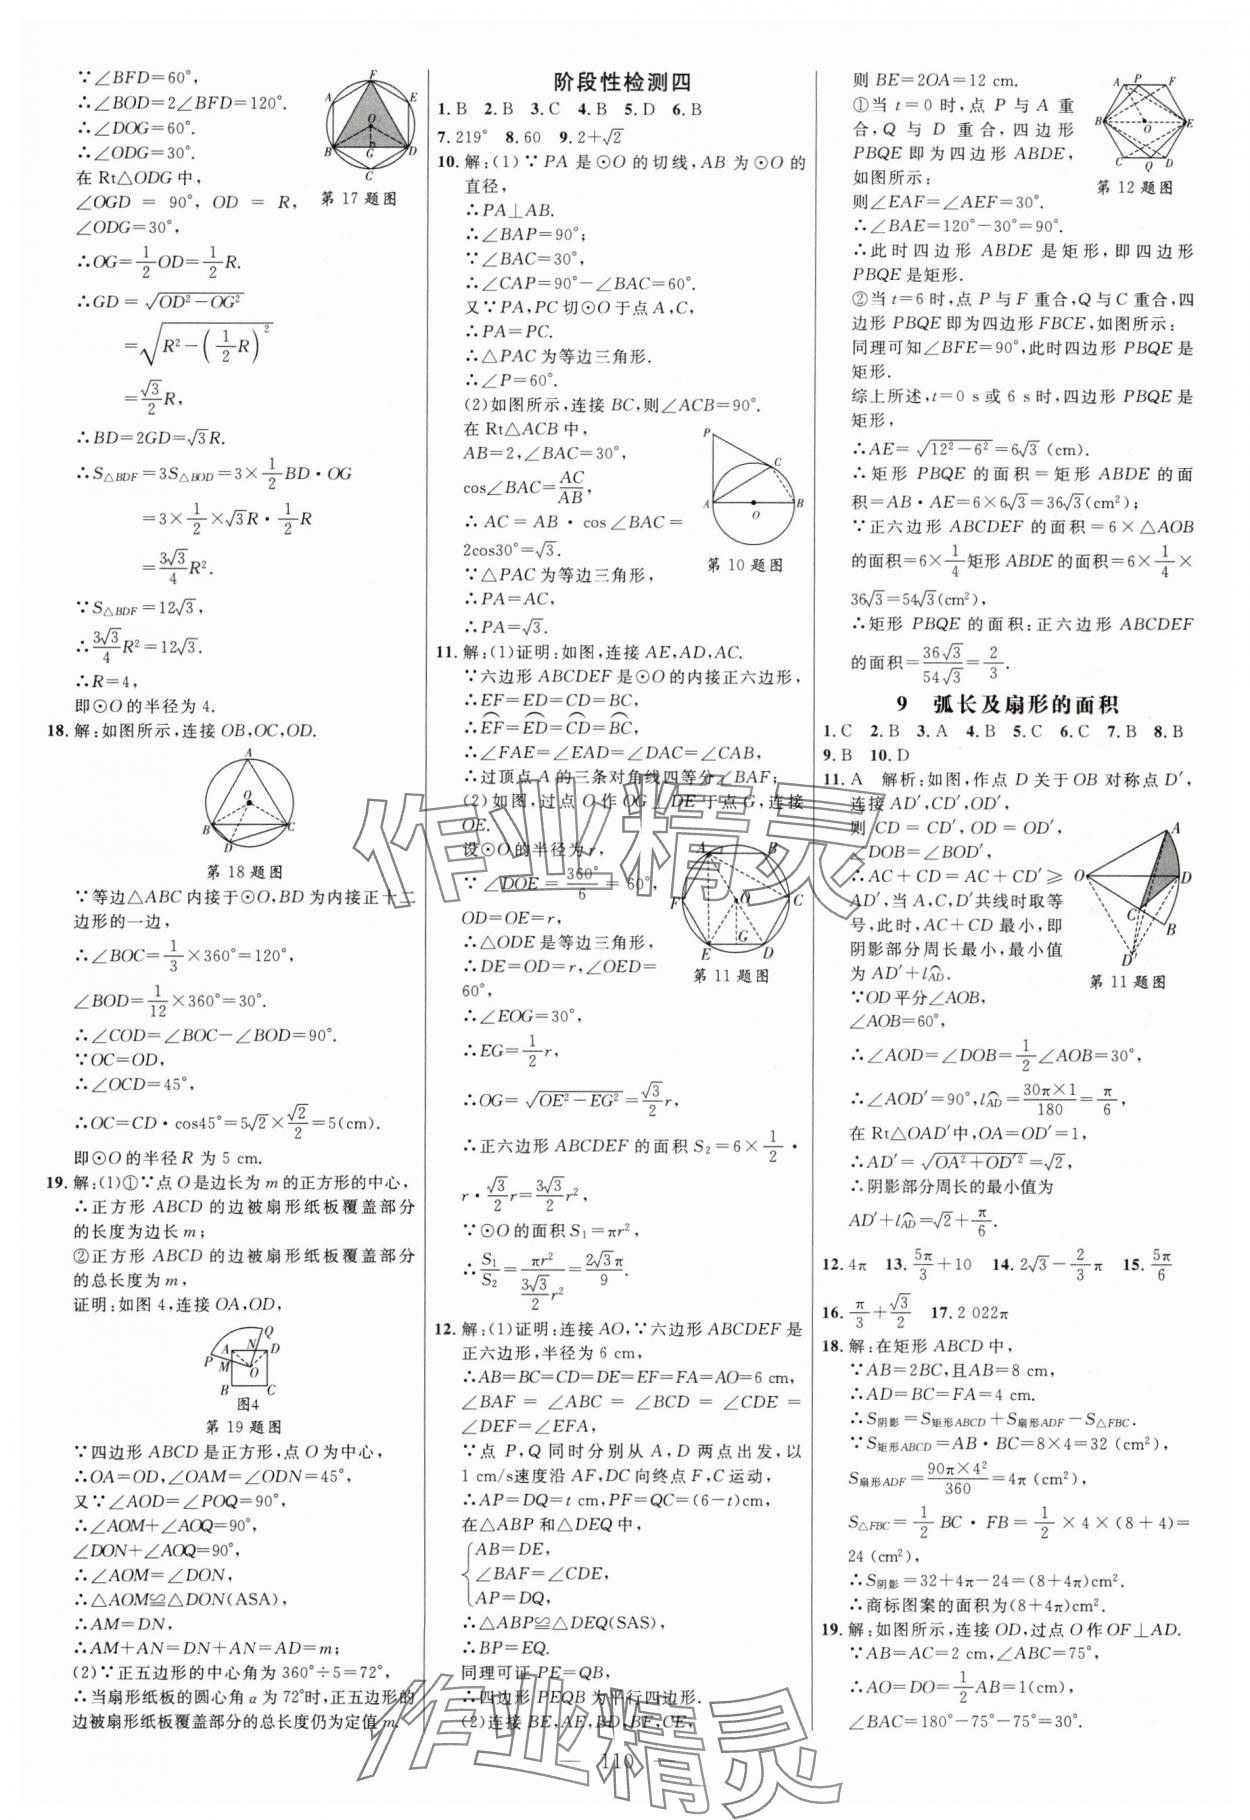 ∵∠BFD=60°,
∴∠BOD=2∠BFD=120°.
∴∠DOG=60°.
∴∠ODG=30°.
在 Rt△ODG 中,
∠OGD = 90°, OD = R,
∠ODG=30°,
∴OG=1/2OD=1/2R.
∴GD=√(OD²-OG²)
=√(R²-(1/2R)²)
=√3/2R,
∴BD=2GD=√3R.
∴S△BDF=3S△BOD=3×1/2BD·OG
=3×1/2×√3R·1/2R
=3√3/4R².
∵S△BDF=12√3,
∴3√3/4R²=12√3.
∴R=4,
即⊙O的半径为 4.
第 17 题图
18. 解:如图所示,连接 OB,OC,OD.
第 18 题图
∵等边△ABC内接于⊙O,BD为内接正十二
边形的一边,
∴∠BOC=1/3×360°=120°,
∠BOD=1/12×360°=30°.
∴∠COD=∠BOC-∠BOD=90°.
∵OC=OD,
∴∠OCD=45°,
∴OC=CD·cos45°=5√2×√2/2=5(cm).
即⊙O的半径 R 为 5 cm.
19. 解:(1)①∵点O是边长为m的正方形的中心,
∴正方形 ABCD 的边被扇形纸板覆盖部分
的长度为边长 m;
②正方形 ABCD 的边被扇形纸板覆盖部分
的总长度为 m,
证明:如图 4,连接 OA,OD,
图4
第 19 题图
∵四边形 ABCD 是正方形,点 O 为中心,
∴OA=OD,∠OAM=∠ODN=45°.
又∵∠AOD=∠POQ=90°,
∴∠AOM+∠AOQ=90°,
∠DON+∠AOQ=90°,
∴∠AOM=∠DON,
∴△AOM≌△DON(ASA),
∴AM=DN,
∴AM+AN=DN+AN=AD=m;
(2)∵正五边形的中心角为 360°÷5=72°,
∴当扇形纸板的圆心角 α 为 72°时,正五边形的
边被扇形纸板覆盖部分的总长度仍为定值 m.
阶段性检测四
1. B 2. B 3. C 4. B 5. D 6. B
7. 219° 8. 60 9. 2+√2
10. 解:(1)∵PA 是⊙O 的切线,AB 为⊙O 的
直径,
∴PA⊥AB.
∴∠BAP=90°;
∵∠BAC=30°,
∴∠CAP=90°-∠BAC=60°.
又∵PA,PC 切⊙O于点 A,C,
∴PA=PC.
∴△PAC 为等边三角形.
∴∠P=60°.
(2)如图所示,连接 BC,则∠ACB=90°.
在 Rt△ACB 中,
AB=2,∠BAC=30°,
cos∠BAC=AC/AB,
∴AC = AB · cos∠BAC =
2cos30°=√3.
∵△PAC 为等边三角形,
∴PA=AC,
∴PA=√3.
第 10 题图
11. 解:(1)证明:如图,连接 AE,AD,AC.
∵六边形ABCDEF是⊙O的内接正六边形,
∴EF=ED=CD=BC,
∴EF⌒=ED⌒=CD⌒=BC⌒,
∴∠FAE=∠EAD=∠DAC=∠CAB,
∴过顶点A的三条对角线四等分∠BAF;
(2)如图,过点 O 作 OG⊥DE 于点 G,连接
OE.
设⊙O的半径为 r,
∵∠DOE=360°/6=60°,
OD=OE=r,
∴△ODE是等边三角形,
∴DE=OD=r,∠OED=
60°,
∴∠EOG=30°,
∴EG=1/2r,
∴OG=√(OE²-EG²)=√3/2r,
∴正六边形 ABCDEF 的面积 S₂=6×1/2·
r·√3/2r=3√3/2r²,
∵⊙O 的面积 S₁=πr²,
∴S₁/S₂=πr²/(3√3/2r²)=2√3π/9.
第 11 题图
12. 解:(1)证明:连接 AO,∵六边形 ABCDEF 是
正六边形,半径为 6 cm,
∴AB=BC=CD=DE=EF=FA=AO=6 cm,
∠BAF = ∠ABC = ∠BCD = ∠CDE =
∠DEF=∠EFA,
∵点 P,Q 同时分别从 A,D 两点出发,以
1 cm/s速度沿 AF,DC向终点 F,C运动,
∴AP=DQ=t cm,PF=QC=(6-t)cm,
在△ABP 和△DEQ 中,
{AB=DE,
∠BAF=∠CDE,
AP=DQ,
∴△ABP≌△DEQ(SAS),
∴BP=EQ.
同理可证 PE=QB,
∴四边形 PEQB 为平行四边形.
(2)连接 BE,AE,BD,BF,CE,
则 BE=2OA=12 cm.
①当 t=0 时,点 P 与 A 重
合,Q 与 D 重合,四边形
PBQE 即为四边形 ABDE,
如图所示:
则∠EAF=∠AEF=30°.
∴∠BAE=120°-30°=90°.
∴此时四边形 ABDE 是矩形,即四边形
PBQE 是矩形.
②当 t=6时,点 P 与 F 重合,Q与C重合,四
边形 PBQE 即为四边形 FBCE,如图所示:
同理可知∠BFE=90°,此时四边形 PBQE 是
矩形.
综上所述,t=0 s 或 6 s 时,四边形 PBQE 是
矩形,
∴AE=√(12²-6²)=6√3 (cm).
∴矩形 PBQE 的面积=矩形 ABDE 的面
积=AB·AE=6×6√3=36√3(cm²);
∵正六边形 ABCDEF 的面积=6×△AOB
的面积=6×1/4矩形 ABDE 的面积=6×1/4×
36√3=54√3(cm²),
∴矩形 PBQE 的面积:正六边形 ABCDEF
的面积=36√3/54√3=2/3.
第 12 题图
9 弧长及扇形的面积
1. C 2. B 3. A 4. B 5. C 6. C 7. B 8. B
9. B 10. D
11. A 解析:如图,作点 D 关于 OB 对称点 D′,
连接 AD′,CD′,OD′,
则 CD = CD′,OD = OD′,
∠DOB=∠BOD′,
∴AC+CD=AC+CD′⩾
AD′,当 A,C,D′共线时取等
号,此时,AC+CD 最小,即
阴影部分周长最小,最小值
为 AD′+lAD⌒.
∵OD平分∠AOB,
∠AOB=60°,
∴∠AOD=∠DOB=1/2∠AOB=30°,
∴∠AOD′=90°,lAD⌒=30π×1/180=π/6,
在 Rt△OAD′中,OA=OD′=1,
∴AD′=√(OA²+OD′²)=√2,
∴阴影部分周长的最小值为
AD′+lAD⌒=√2+π/6.
第 11 题图
12. 4π 13. 5π/3+10 14. 2√3-2/3π 15. 5π/6
16. π/3+√3/2 17. 2 022π
18. 解:在矩形 ABCD 中,
∵AB=2BC,且AB=8 cm,
∴AD=BC=FA=4 cm.
∴S阴影=S矩形ABCD+S扇形ADF-S△FBC.
∵S矩形ABCD=AB·BC=8×4=32 (cm²),
S扇形ADF=90π×4²/360=4π(cm²),
S△FBC=1/2 BC·FB=1/2×4×(8+4)=
24 (cm²),
∴S阴影=32+4π-24=(8+4π)cm².
∴商标图案的面积为(8+4π)cm².
19. 解:如图所示,连接 OD,过点 O作 OF⊥AD.
∵AB=AC=2 cm,∠ABC=75°,
∴AO=DO=1/2AB=1(cm),
∠BAC=180°-75°-75°=30°.
110
作业精灵
作业精灵